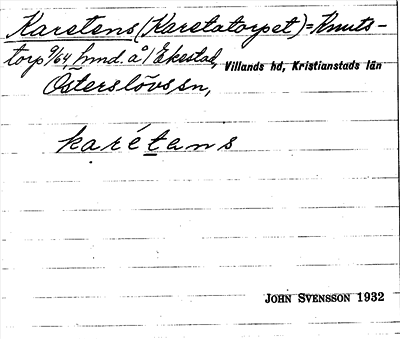 Karetens (Karetatorpet) = Knuts-
torp 9/64, hmd. å / Ekestad, Villands hd, Kristianstads län
Österslövs sn,
karétans
JOHN SVENSSON 1932